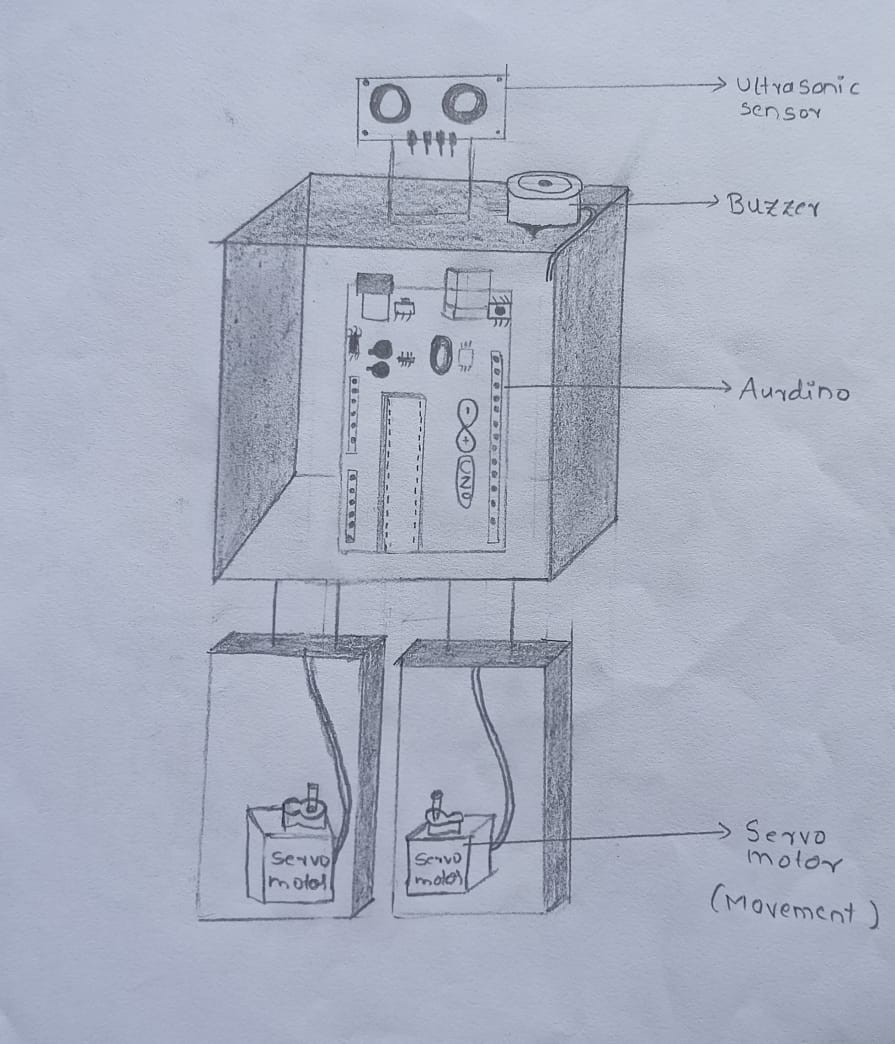 Ultrasonic
sensor
Buzzer
Aurdino
UNO
Servo
motor
Servo
motor
Servo
motor
(Movement)